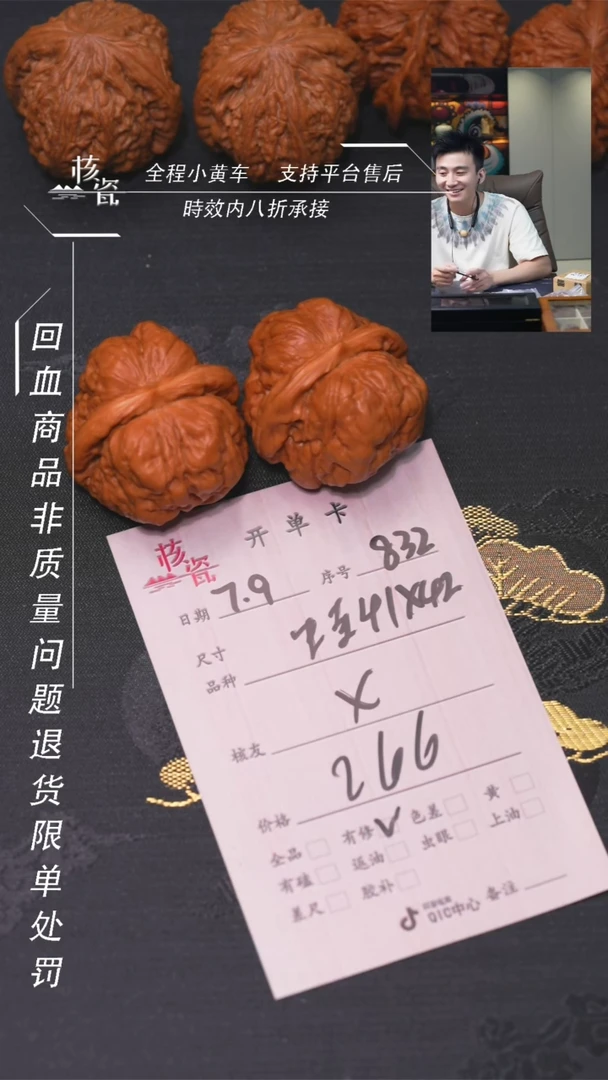 核瓷
全程小黄车 支持平台售后
時效内八折承接
回血商品非质量问题退货限单处罚
核瓷
开单卡
日期 7.9 序号 832
尺寸 41X42
品种
核友 X
价格 266
全品 有修 ✓ 色差 黄
有磕 返油 虫眼 上油
差尺 胶补
QIC中心 备注